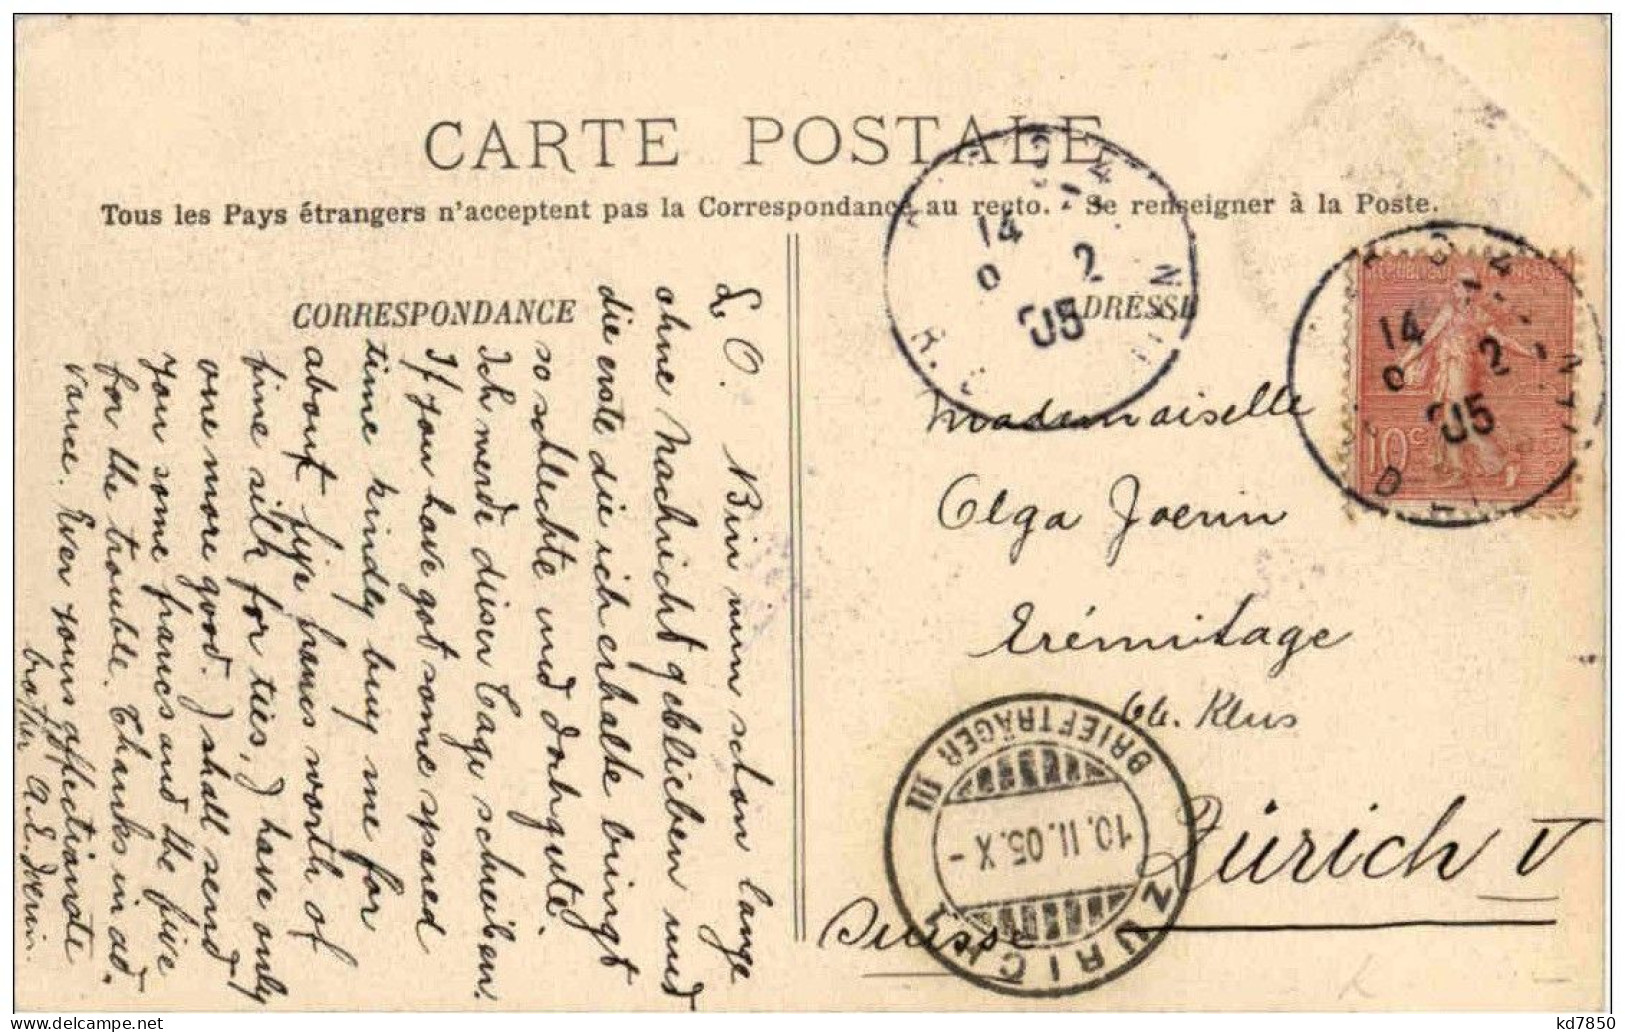 CARTE POSTALE
Tous les Pays étrangers n'acceptent pas la Correspondance au recto. - Se renseigner à la Poste.
CORRESPONDANCE
ADRESSE
L O. Bin nun schon lange
ohne Nachricht geblieben und
die erste die ich erhalte bringt
so schlechte und doch gute.
Ich werde diesen Tage schreiben.
If you have got some spared
time kindly buy me for
about five francs worth of
fine silk for ties, I have only
one more good. I shall send
you some francs and the five
for the trouble. Thanks in ad.
vance. Ever yours affectionate
brother A.E. Joerin.
Mademoiselle
Olga Joerin
Erémitage
Klus
Zürich V
Suisse
RÉPUBLIQUE FRANÇAISE
10c
14 2
05
14 2
05
ZÜRICH 1
BRIEFTRÄGER III
10.II.05.X-
kd7850